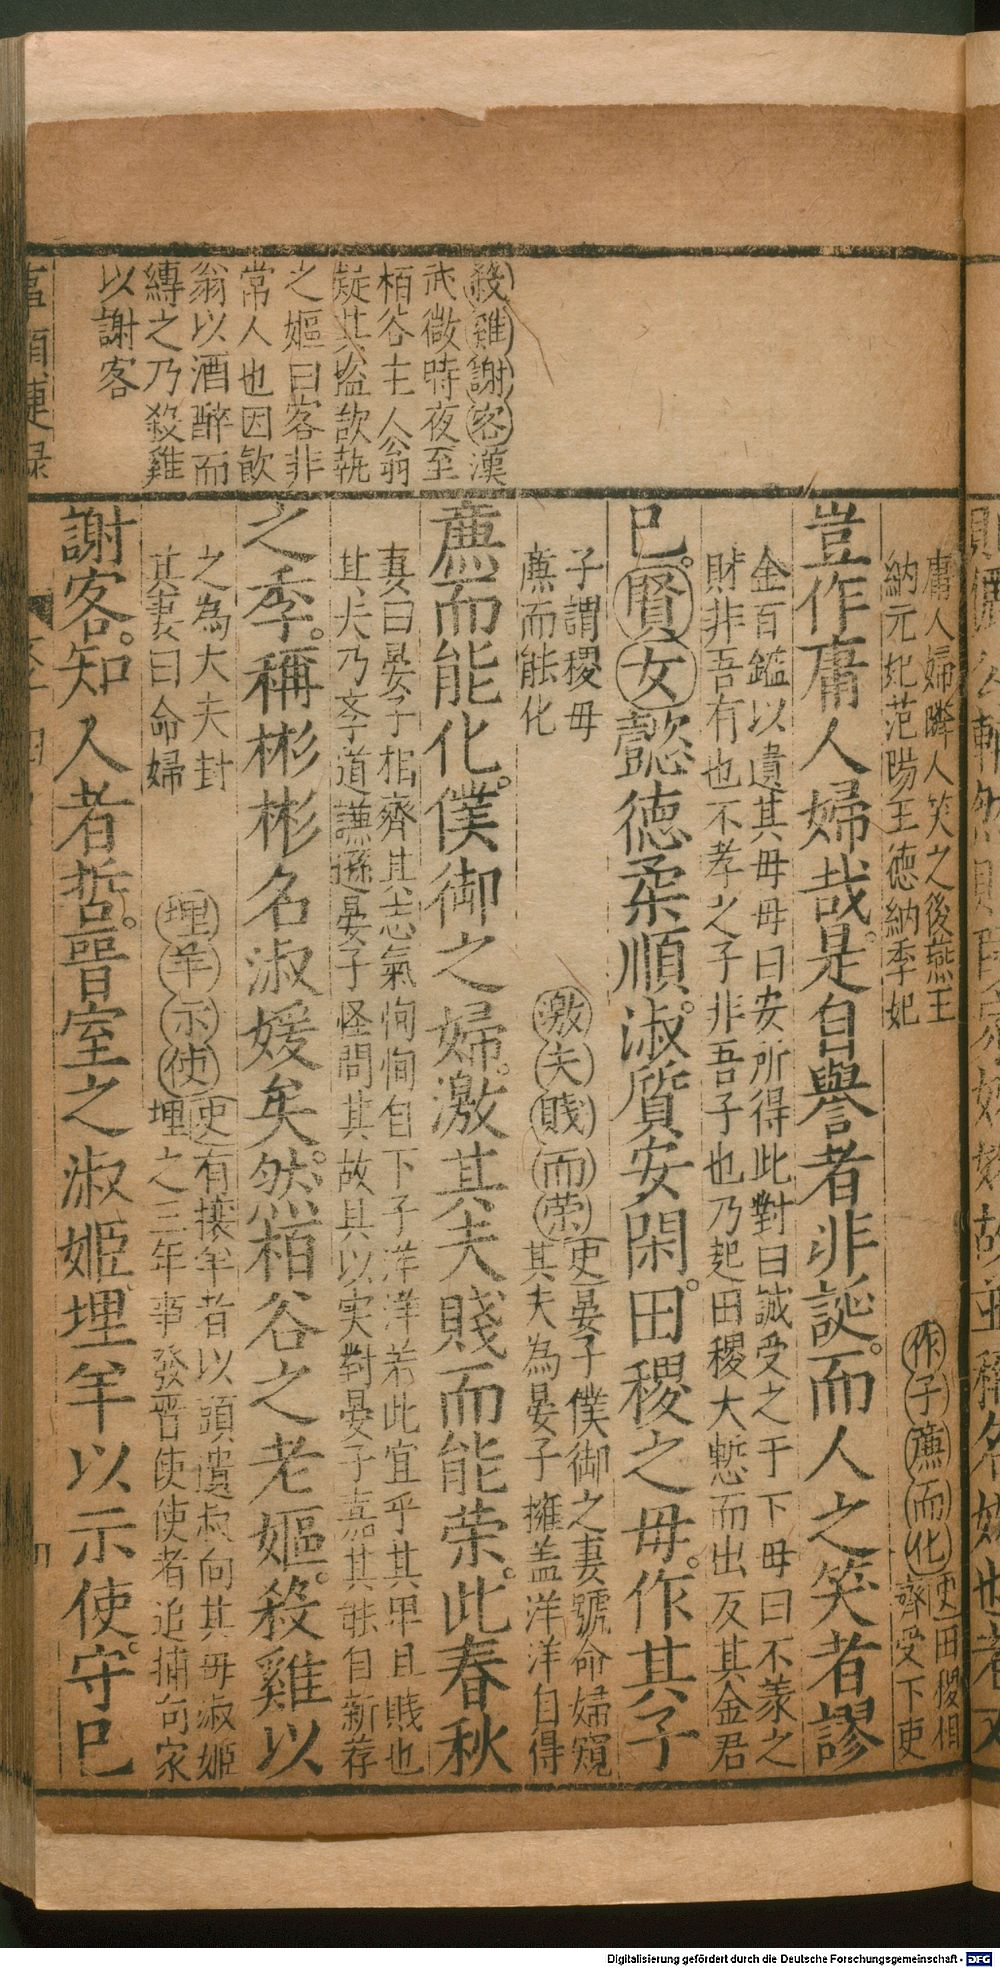 殺雞謝客漢
武微時夜至
栢谷主人翁
疑其盗欲執
之嫗曰客非
常人也因飲
翁以酒醉而
縛之乃殺雞
以謝客
庸人婦隣人笑之後燕王
納元妃范陽王德納季妃
作子廉而化史田稷相
齊受下吏
豈作庸人婦哉是自譽者非誕而人之笑者謬
金百鑑以遺其母母曰安所得此對曰誠受之于下母曰不義之
財非吾有也不孝之子非吾子也乃起田稷大慙而出反其金君
已賢女懿德柔順淑質安閑田稷之母作其子
子謂稷母
廉而能化
激夫賤而荣史晏子僕御之妻號命婦窺
其夫為晏子擁盖洋洋自得
廉而能化僕御之婦激其夫賤而能荣此春秋
妻曰晏子相齊其志氣恂恂自下子洋洋若此宜乎其卑且賤也
其夫乃孝道謙遜晏子怪問其故具以实對晏子嘉其能自新荐
之季稱彬彬名淑媛矣然栢谷之老嫗殺雞以
之為大夫封
其妻曰命婦
埋羊示使史有攘羊者以頭遺叔向其母淑姬
埋之三年事發晋使使者追捕向家
謝客知人者哲晉室之淑姬埋羊以示使守巳
Digitalisierung gefördert durch die Deutsche Forschungsgemeinschaft - DFG